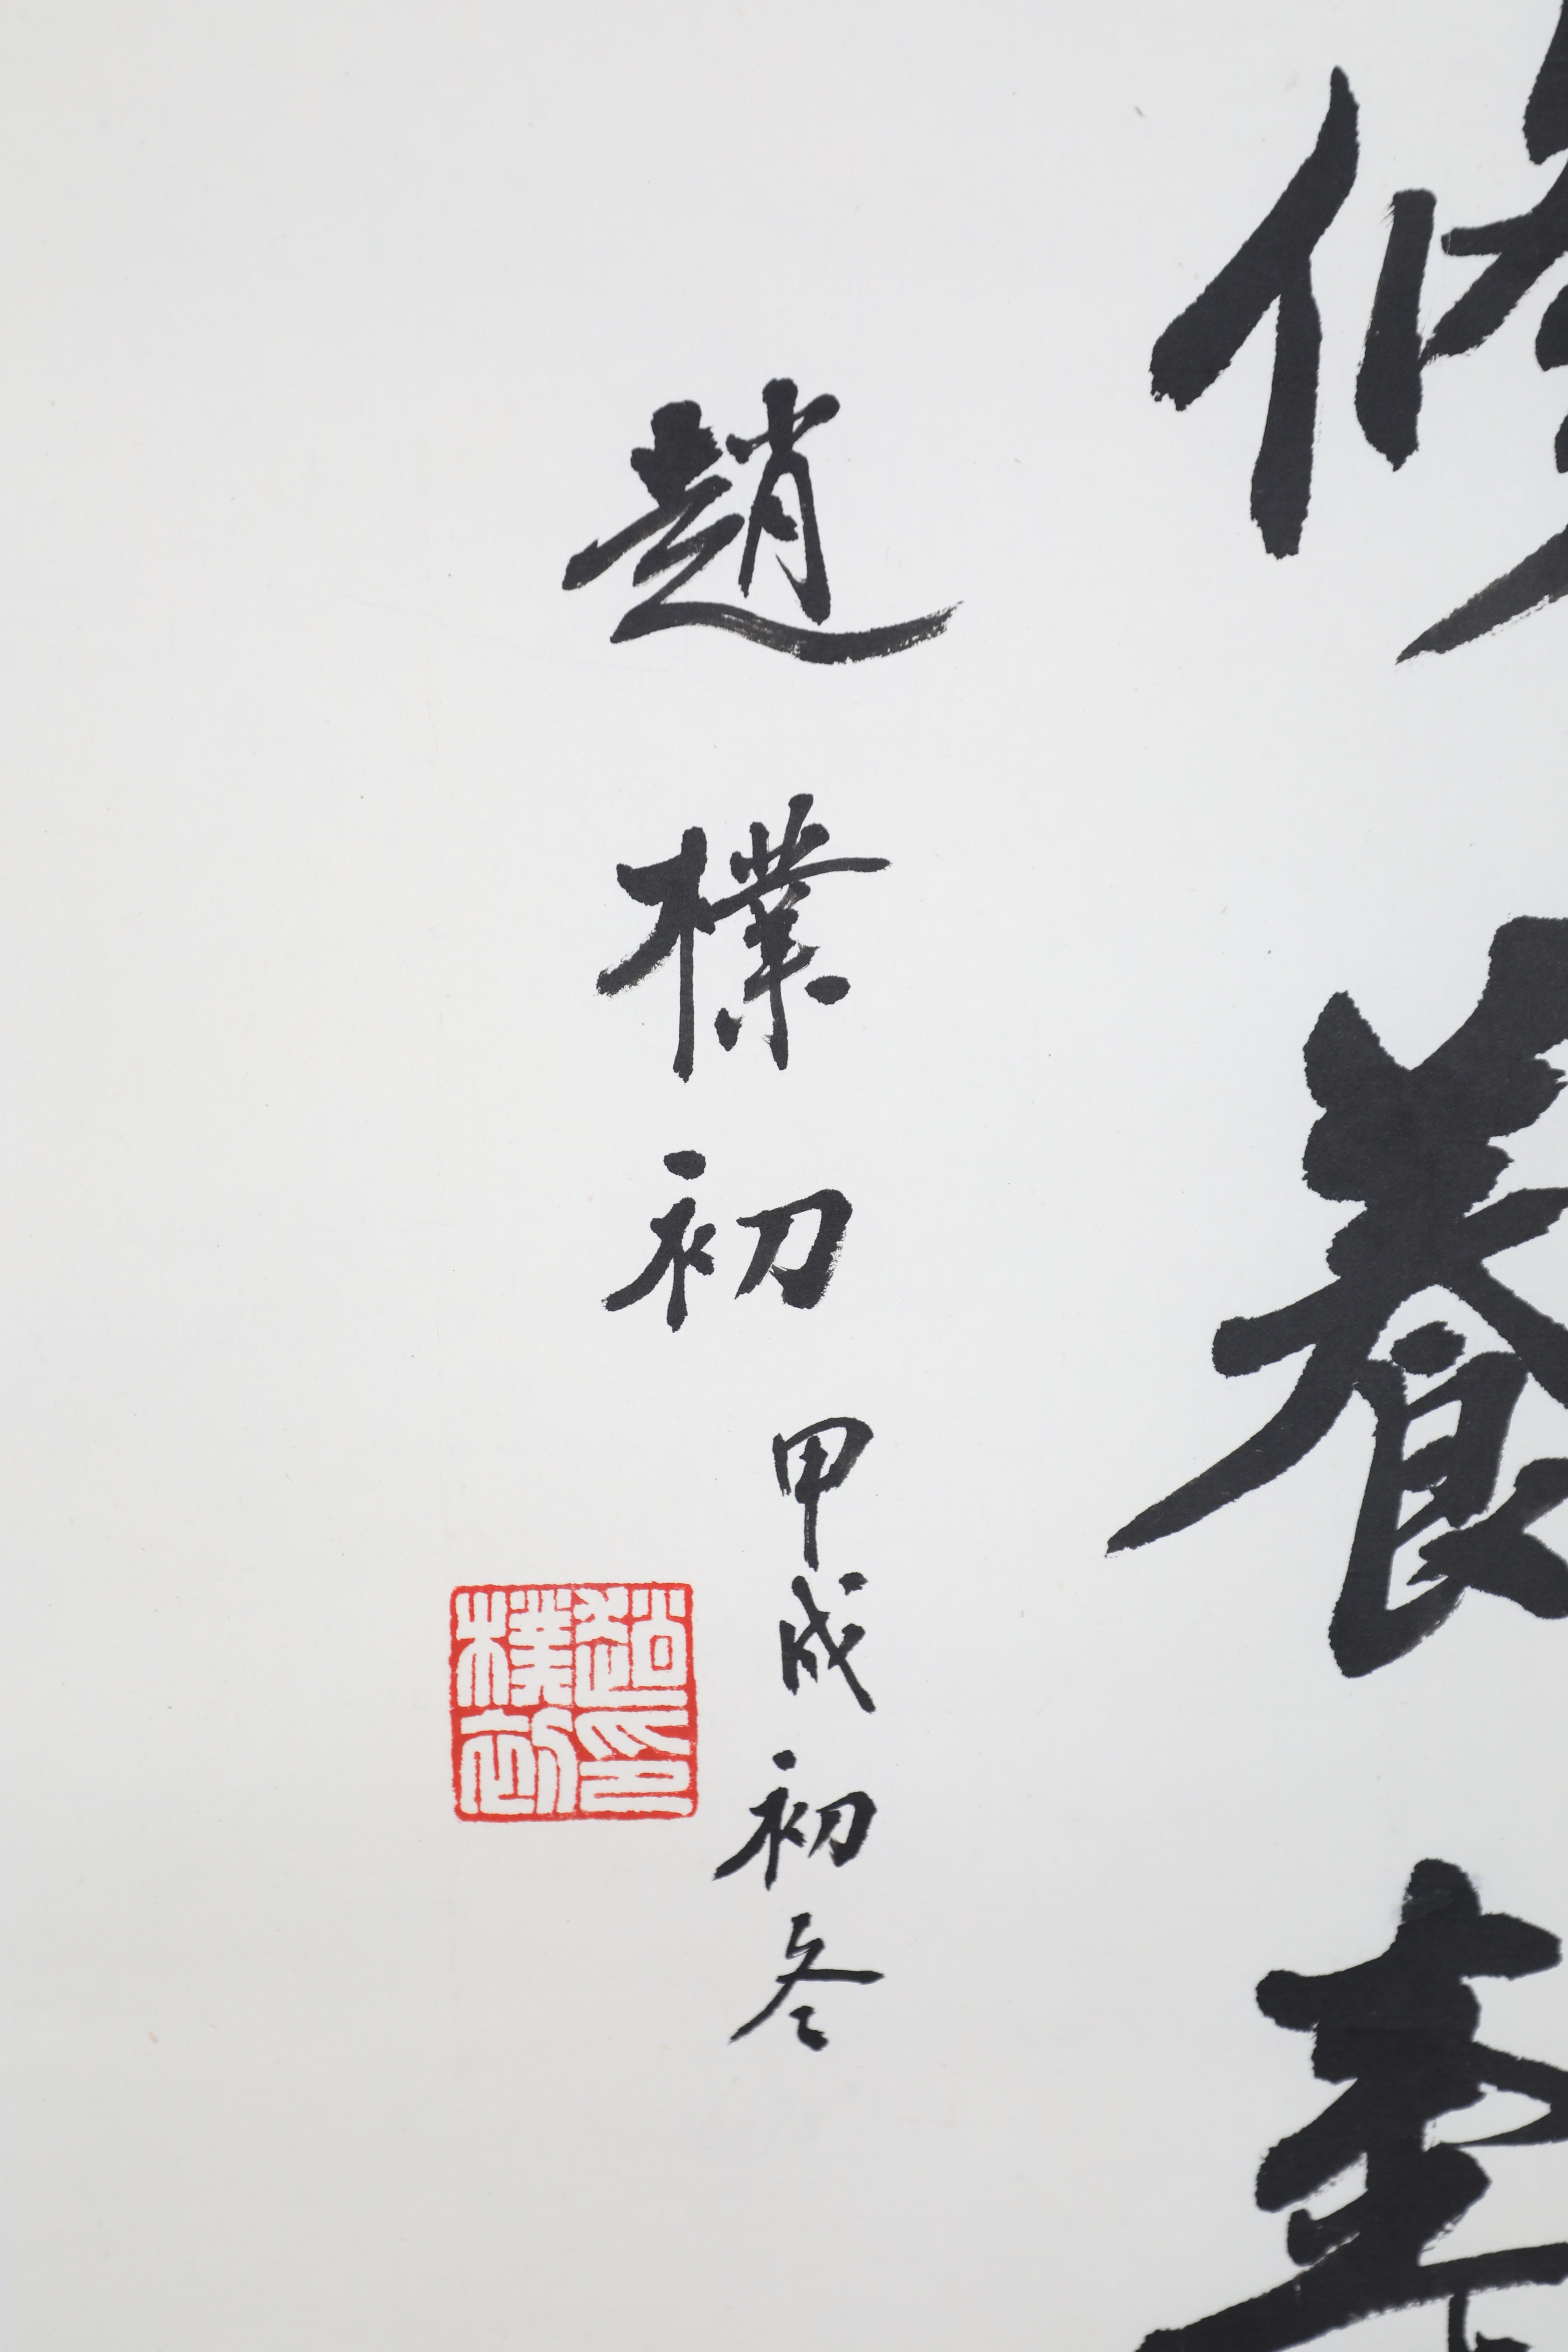 修養
趙樸初
甲戌初冬
趙印樸初